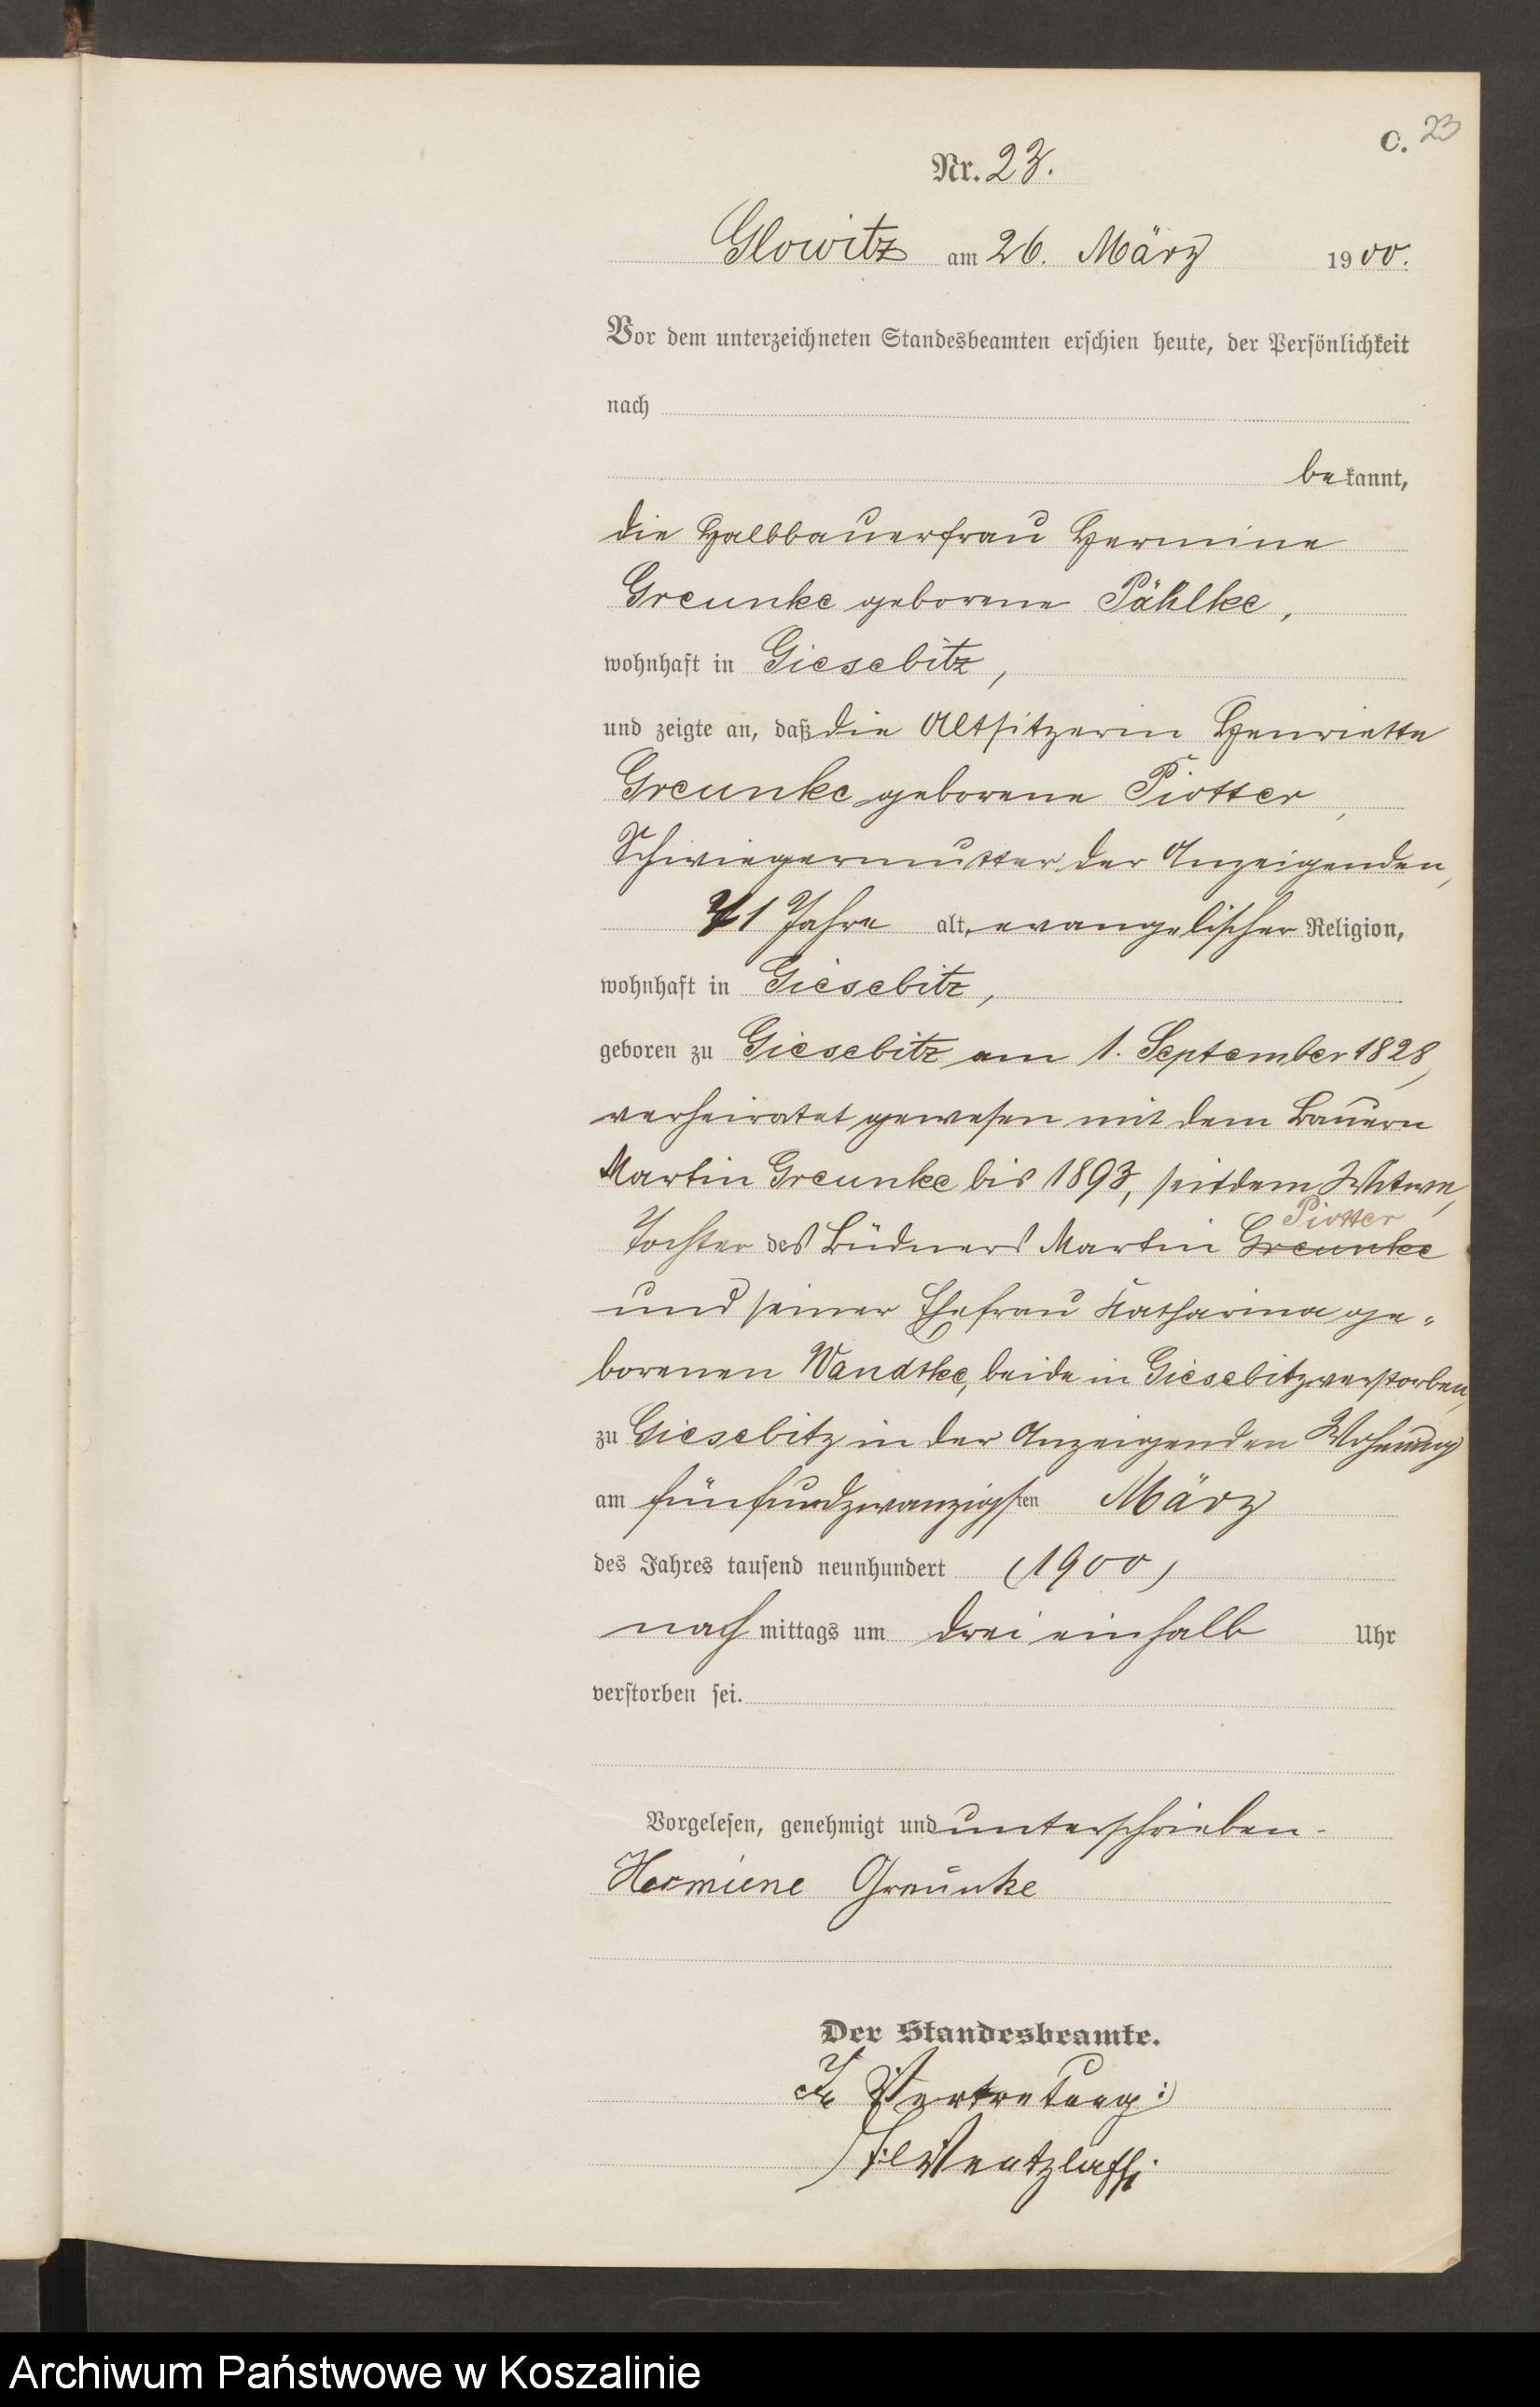 C. 23
Nr. 23.
Glowitz am 26. März 1900.
Vor dem unterzeichneten Standesbeamten erschien heute, der Persönlichkeit
nach
bekannt,
die Halbbauerfrau Hermine
Greunke geborene Pählke,
wohnhaft in Giesebitz,
und zeigte an, daß die Altsitzerin Henriette
Greunke geborene Piotter,
Schwiegermutter der Anzeigenden,
71 Jahre alt, evangelischer Religion,
wohnhaft in Giesebitz,
geboren zu Giesebitz am 1. September 1828,
verheiratet gewesen mit dem Bauern
Martin Greunke bis 1893, seitdem Witwe,
Piotter
Tochter des Büdners Martin Greunke
und seiner Ehefrau Katharina ge-
borenen Wandtke, beide in Giesebitz verstorben,
zu Giesebitz in der Anzeigenden Wohnung
am fünfundzwanzigsten März
des Jahres tausend neunhundert (1900)
nachmittags um drei einhalb Uhr
verstorben sei.
Vorgelesen, genehmigt und unterschrieben.
Hermiene Greunke
Der Standesbeamte.
In Vertretung:
Wentzlaff.
Archiwum Państwowe w Koszalinie